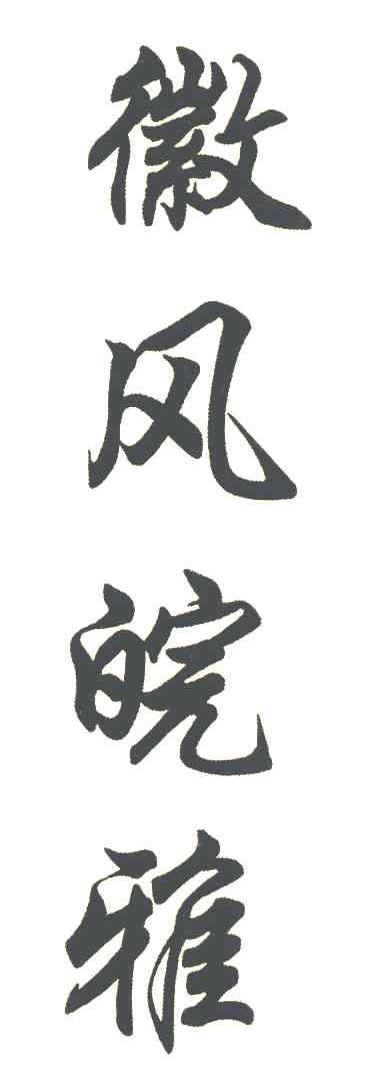 徽风皖雅